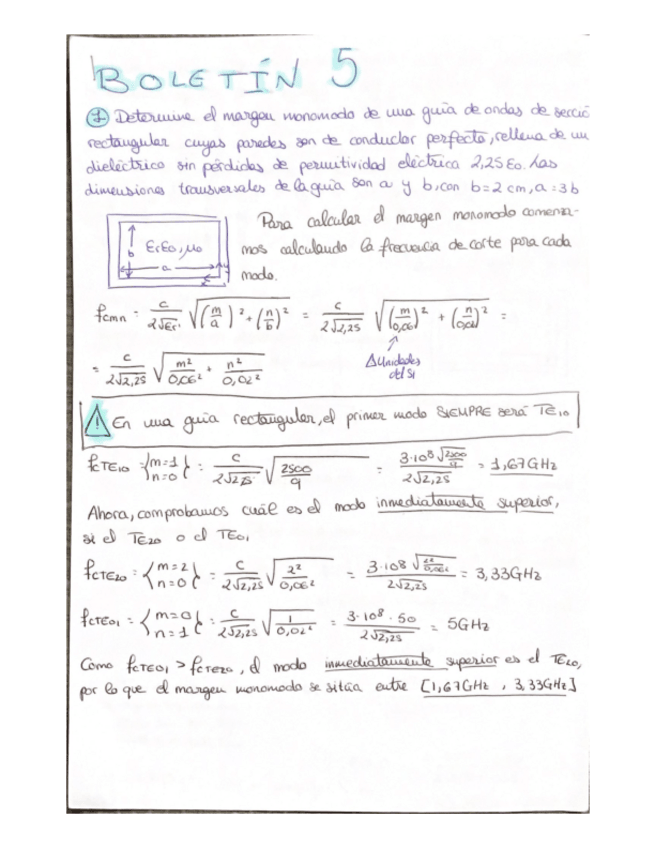 BOLETÍN 5
① Determine el margen monomodo de una guía de ondas de secció
rectangular cuyas paredes son de conductor perfecto, rellena de un
dieléctrico sin pérdidas de permitividad eléctrica 2,25 ε₀. Las
dimensiones transversales de la guía son a y b, con b = 2 cm, a = 3b
Para calcular el margen monomodo comenza-
mos calculando la frecuencia de corte para cada
modo.
b εrε₀, μ₀
a
fcmn = c/(2√εr) √((m/a)² + (n/b)²) = c/(2√2,25) √((m/0,06)² + (n/0,02)²) =
= c/(2√2,25) √(m²/0,06² + n²/0,02²)
Δ Unidades
del SI
⚠ En una guía rectangular, el primer modo SIEMPRE será TE₁₀
fcTE₁₀ = {m=1 n=0} = c/(2√2,25) √(2500/9) = 3·10⁸ √(2500/9)/(2√2,25) = 1,67GHz
Ahora, comprobamos cuál es el modo inmediatamente superior,
si el TE₂₀ o el TE₀₁
fcTE₂₀ = {m=2 n=0} = c/(2√2,25) √(2²/0,06²) = 3·10⁸ √(2²/0,06²)/(2√2,25) = 3,33GHz
fcTE₀₁ = {m=0 n=1} = c/(2√2,25) √(1/0,02²) = 3·10⁸·50/(2√2,25) = 5GHz
Como fcTE₀₁ > fcTE₂₀, el modo inmediatamente superior es el TE₂₀,
por lo que el margen monomodo se sitúa entre [1,67GHz , 3,33GHz]